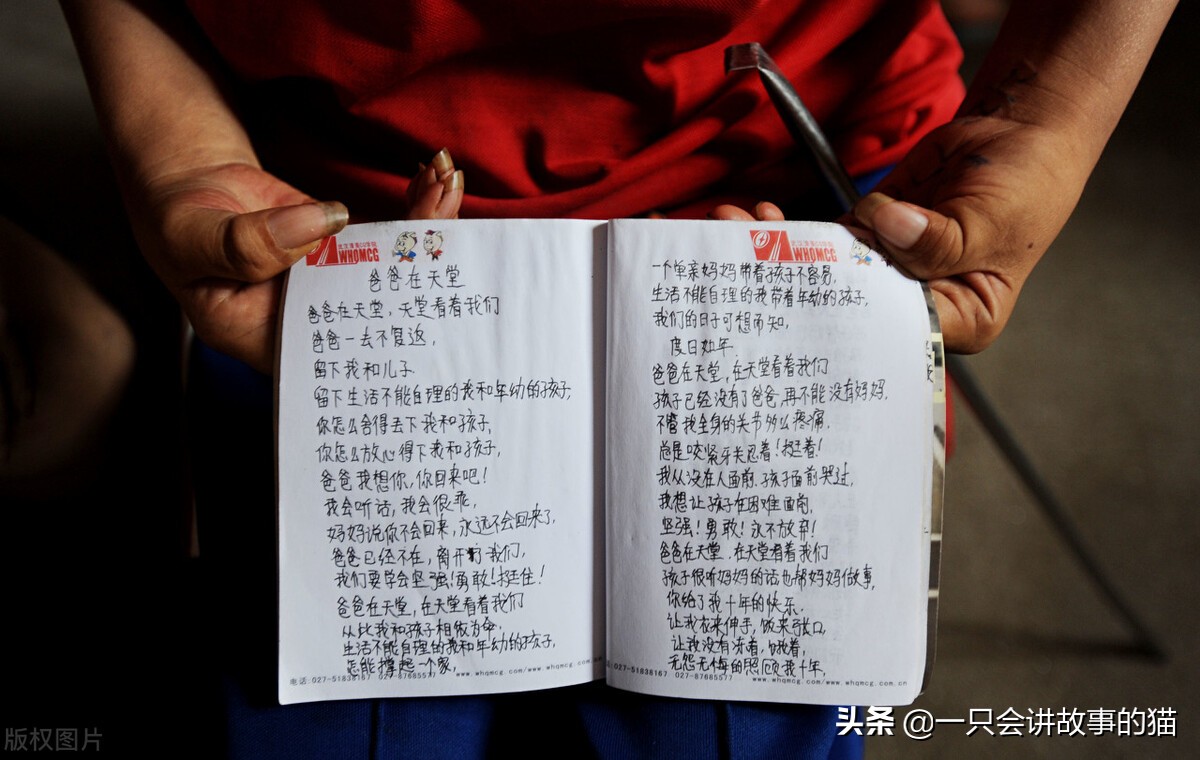 WHQMCG
爸爸在天堂
爸爸在天堂,天堂看着我们
爸爸一去不复返,
留下我和儿子
留下生活不能自理的我和年幼的孩子,
你怎么舍得丢下我和孩子,
你怎么放心得下我和孩子,
爸爸我想你,你回来吧!
我会听话,我会很乖,
妈妈说你不会回来,永远不会回来了,
爸爸已经不在,离开了我们,
我们要学会坚强!勇敢!挺住!
爸爸在天堂,在天堂看着我们
从此我和孩子相依为命.
生活不能自理的我和年幼的孩子,
怎能撑起一个家,
电话:027-51838167 027-87685577 www.whqmcg.com/www.whqmcg.com
WHQMCG
一个单亲妈妈带着孩子不容易,
生活不能自理的我带着年幼的孩子,
我们的日子可想而知,
度日如年
爸爸在天堂,在天堂看着我们
孩子已经没有了爸爸,再不能没有妈妈,
不管我全身的关节多么疼痛,
总是咬紧牙关忍着!挺着!
我从没在人面前.孩子面前哭过,
我想让孩子在困难面前,
坚强!勇敢!永不放弃!
爸爸在天堂.在天堂看着我们
孩子很听妈妈的话也帮妈妈做事,
你给了我十年的快乐.
让我衣来伸手,饭来张口,
让我没有冻着,饿着,
无怨无悔的照顾我十年,
027-51838167 027-87685577 www.whqmcg.com/www.whqmcg.com.cn
版权图片
头条 @一只会讲故事的猫